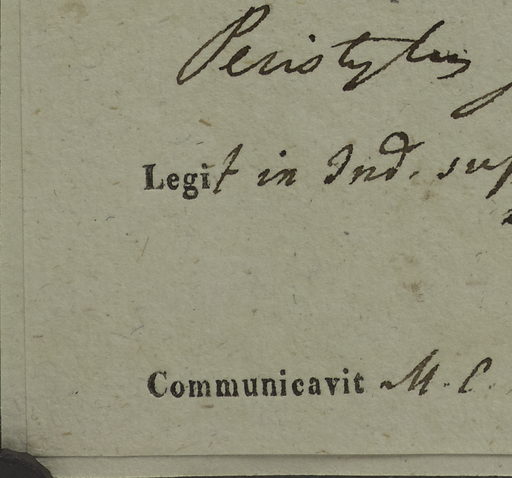 Peristylus
Legit in Ind. sup
Communicavit M. C.